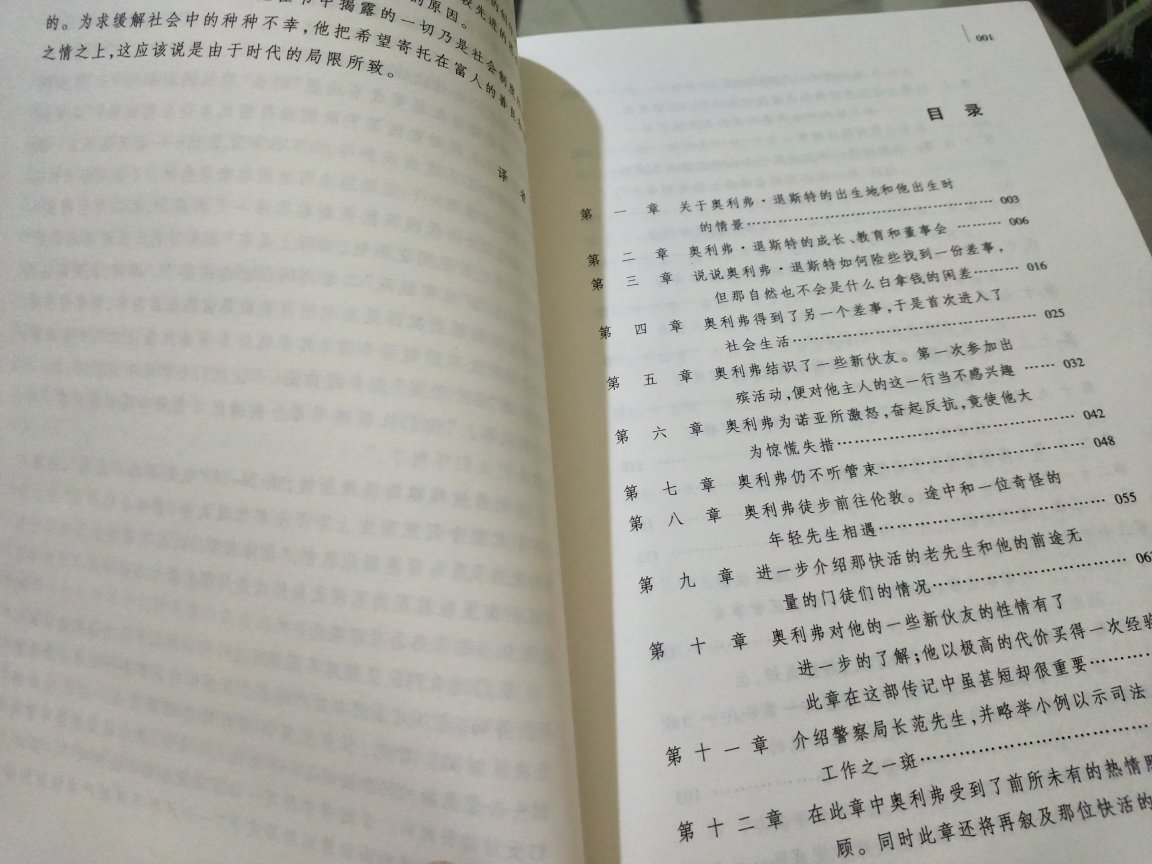 的原因。
书中揭露的一切乃是社会制度
的。为求缓解社会中的种种不幸，他把希望寄托在富人的善良
之情之上，这应该说是由于时代的局限所致。
译 者
001
目 录
第 一 章 关于奥利弗·退斯特的出生地和他出生时
的情景………………………………………… 003
第 二 章 奥利弗·退斯特的成长、教育和董事会 ……… 006
第 三 章 说说奥利弗·退斯特如何险些找到一份差事，
但那自然也不会是什么白拿钱的闲差……… 016
第 四 章 奥利弗得到了另一个差事，于是首次进入了
社会生活…………………………………… 025
第 五 章 奥利弗结识了一些新伙友。第一次参加出
殡活动，便对他主人的这一行当不感兴趣 …… 032
第 六 章 奥利弗为诺亚所激怒，奋起反抗，竟使他大
为惊慌失措………………………………… 042
第 七 章 奥利弗仍不听管束………………………… 048
第 八 章 奥利弗徒步前往伦敦。途中和一位奇怪的
年轻先生相遇……………………………… 055
第 九 章 进一步介绍那快活的老先生和他的前途无
量的门徒们的情况…………………………
第 十 章 奥利弗对他的一些新伙友的性情有了
进一步的了解；他以极高的代价买得一次经验
此章在这部传记中虽甚短却很重要………
第 十 一 章 介绍警察局长范先生，并略举小例以示司法
工作之一斑…………………………
第 十 二 章 在此章中奥利弗受到了前所未有的热情
顾。同时此章还将再叙及那位快活的